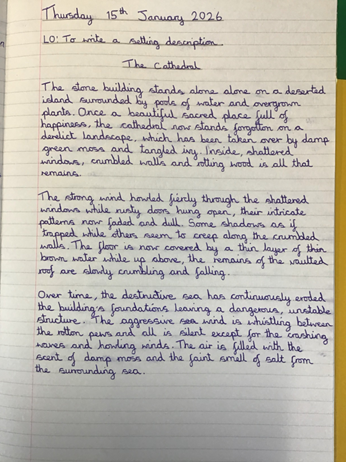 Thursday 15th January 2026
LO: To write a setting description.
The Cathedral
The stone building stands alone alone on a deserted
island surrounded by pools of water and overgrown
plants. Once a beautiful sacred place full of
happiness, the cathedral now stands forgotten on a
derelict landscape, which has been taken over by damp
green moss and tangled ivy. Inside, shattered
windows, crumbled walls and rotting wood is all that
remains.
The strong wind howled fiercly through the shattered
windows while rusty doors hung open, their intricate
patterns now faded and dull. Some shadows as if
trapped while others seem to creep along the crumbled
walls. The floor is now covered by a thin layer of thin
brown water while up above, the remains of the vaulted
roof are slowly crumbling and falling.
Over time, the destructive sea has continuously eroded
the building's foundations leaving a dangerous, unstable
structure. The aggressive sea wind is whistling between
the rotton pews and all is silent except for the crashing
waves and howling winds. The air is filled with the
scent of damp moss and the faint smell of salt from
the surrounding sea.